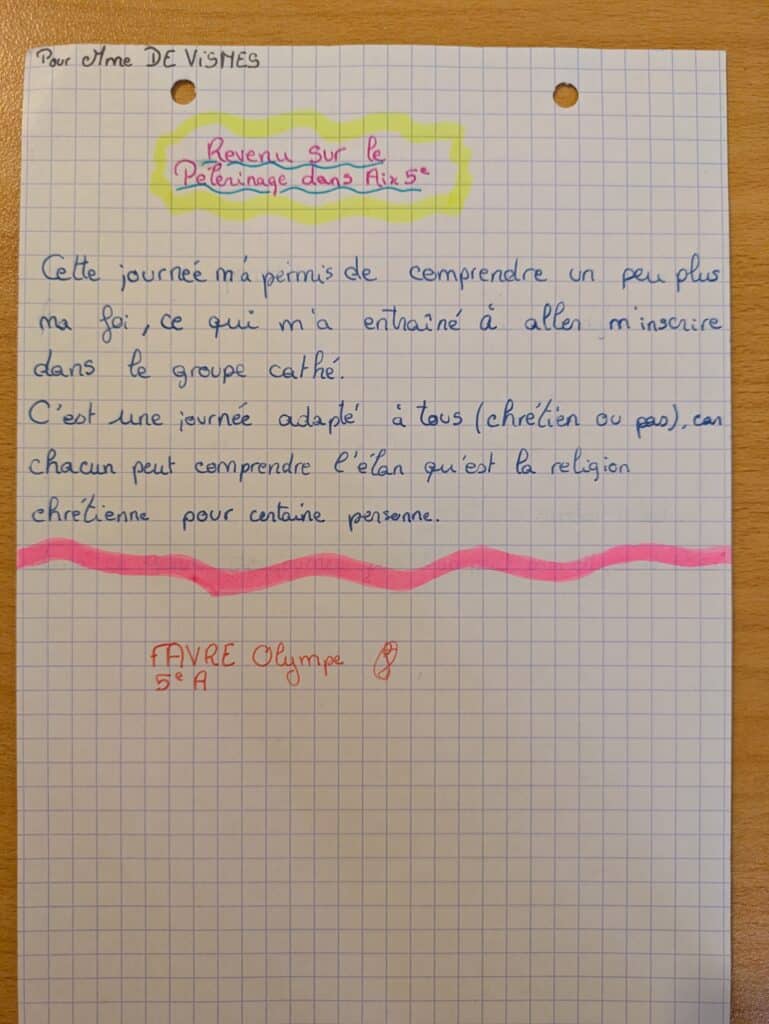 Pour Mme DE ViSMES
Revenu sur le
Pèlerinage dans Aix 5e
Cette journeé m'a permis de comprendre un peu plus
ma foi, ce qui m'a entraîné à aller m'inscrire
dans le groupe cathé.
C'est une journée adapté à tous (chrétien ou pas), car
chacun peut comprendre l'élan qu'est la religion
chrétienne pour certaine personne.
FAVRE Olympe
5e A